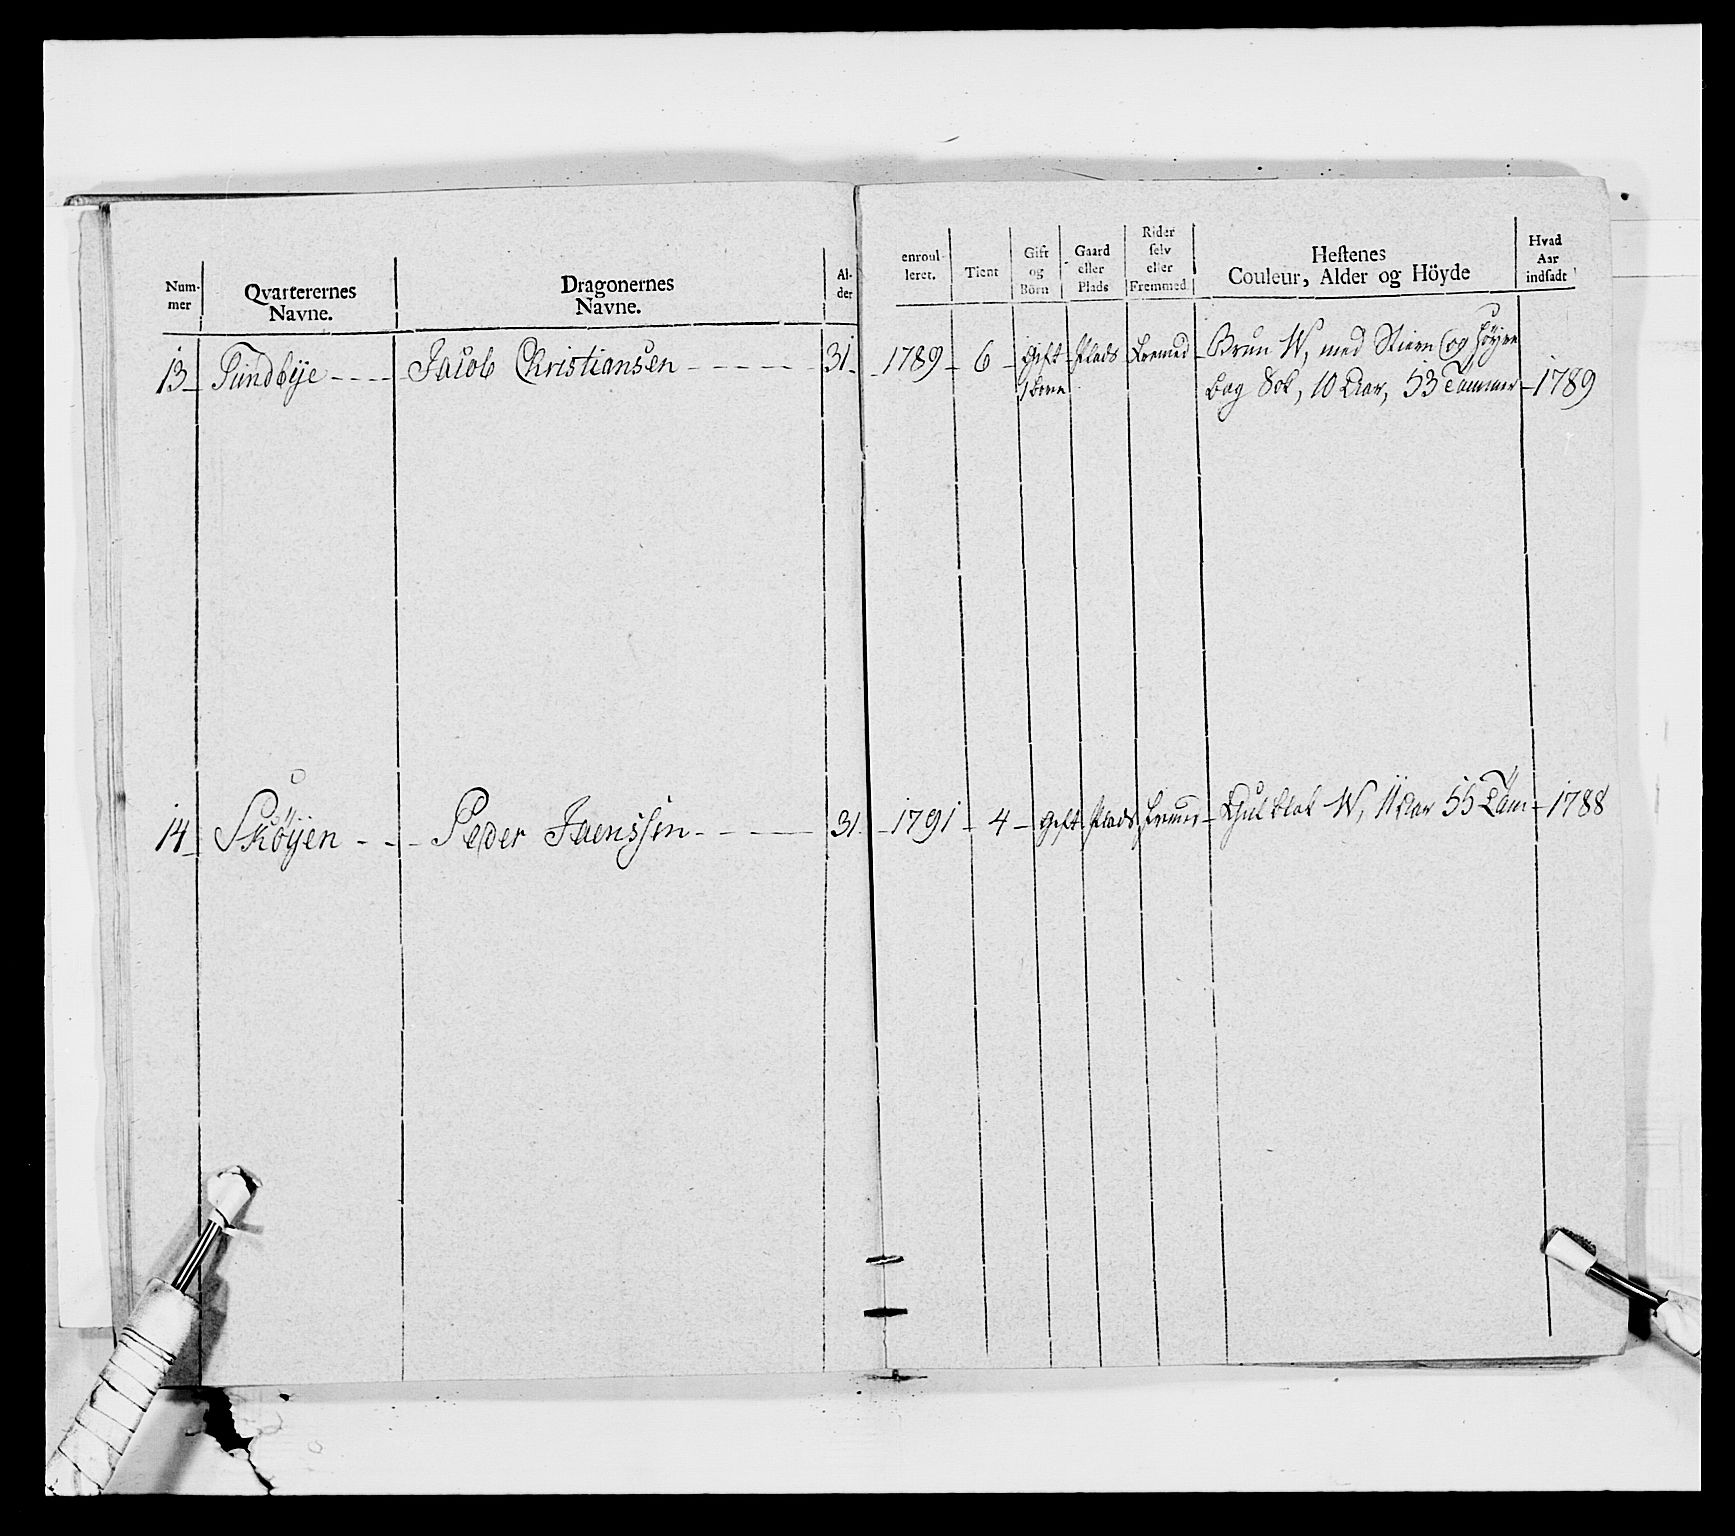 Num-
mer
Qvarterernes
Navne.
Dragonernes
Navne.
Al-
der
enroul-
leret.
Tient
Gift
og
Börn
Gaard
eller
Plads
Rider
selv
eller
Fremmed.
Hestenes
Couleur, Alder og Höyde
Hvad
Aar
indsadt
13 Sundbye Jacob Christiansen 31 1789 6 Gift Plads Fremed Brun W, med Stiern og höyre
1 Barn bag Sok, 10 Aar, 53 Tommer 1789
14 Sköyen Peder Jaenssen 31 1791 4 Gift Plads fremed W, 11 Aar 55 Tom 1788